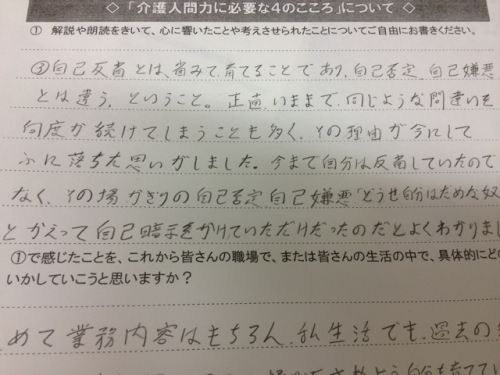 ◇ 「介護人間力に必要な4のこころ」について ◇
① 解説や朗読をきいて、心に響いたことや考えさせられたことについてご自由にお書きください。
③自己反省とは、省みて、育てることであり、自己否定、自己嫌悪
とは違う、ということ。正直いままで、同じような間違いを
何度か続けてしまうことも多く、その理由が今にして
ふに落ちた思いがしました。今まで自分は反省していたので
なく、その場かぎりの自己否定自己嫌悪「どうせ自分はだめな奴
とかえって自己暗示をかけていただけだったのだとよくわかりまし
①で感じたことを、これから皆さんの職場で、または皆さんの生活の中で、具体的にど
いかしていこうと思いますか？
めて業務内容はもちろん、私生活でも、過去の